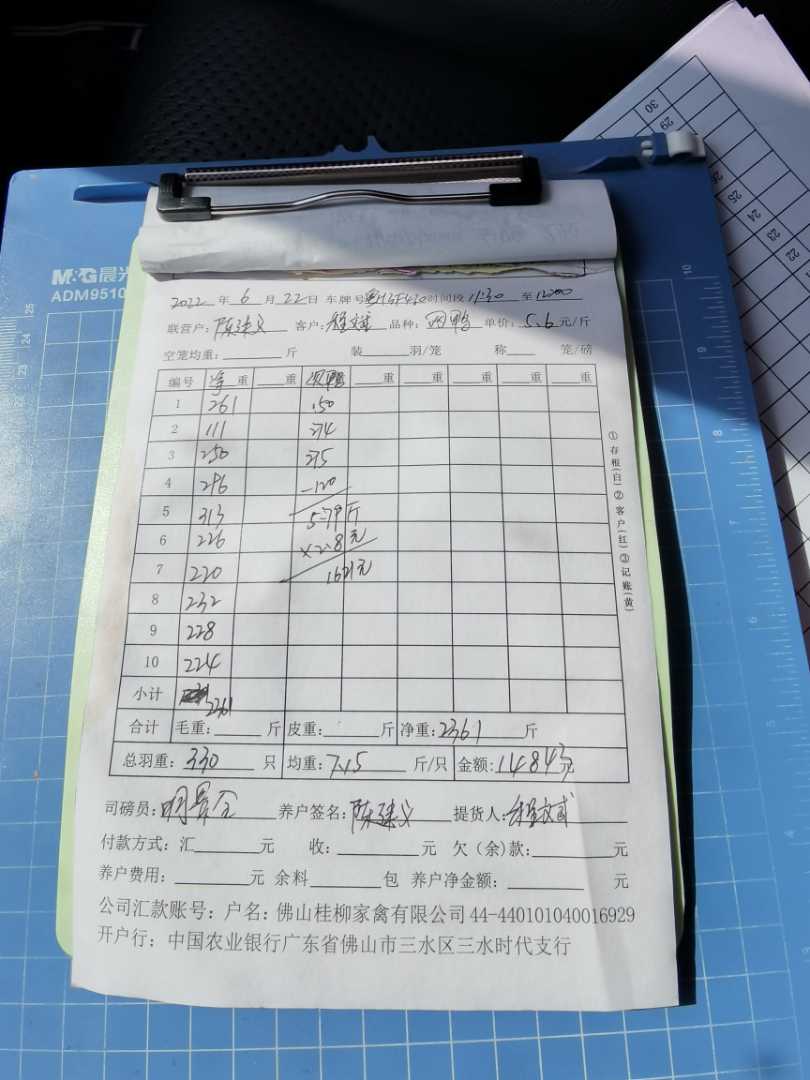 M&G晨光
ADM9510
2022年6月22日 车牌号 时间段11:30至12:00
联营户:陈建义 客户:程文斌 品种:肉鸭 单价:5.6元/斤
空笼均重:____斤 装____羽/笼 称____笼/磅
编号 净重 ____重 次鸭 ____重 ____重 ____重 ____重 ____重
1 261 150
2 111 274
3 250 275
4 296 -120
5 313 579斤
6 226 ×2.8元
7 220 1621元
8 232
9 228
10 224
小计 2361
合计 毛重:____斤 皮重:____斤 净重:2361斤
总羽重:330只 均重:7.15斤/只 金额:14843元
司磅员: 养户签名:陈建义 提货人:程文斌
付款方式:汇____元 收:____元 欠(余)款:____元
养户费用:____元 余料____包 养户净金额:____元
公司汇款账号:户名:佛山桂柳家禽有限公司 44-440101040016929
开户行:中国农业银行广东省佛山市三水区三水时代支行
①存根(白)②客户(红)③记账(黄)
30
29
26
25
24
23
22
25
24
23
22
21
10
9
8
6
5
4